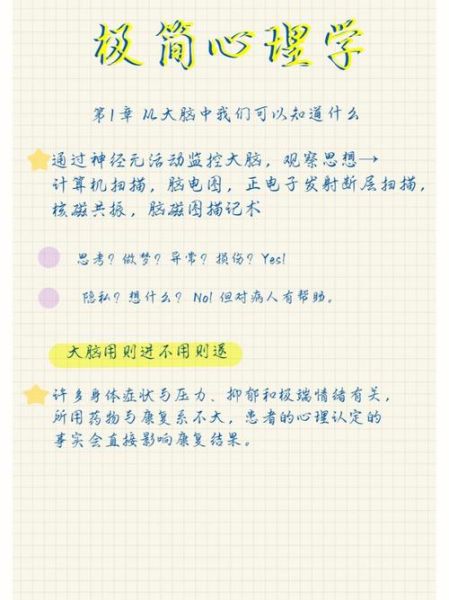 极简心理学
第1章 从大脑中我们可以知道什么
通过神经元活动监控大脑，观察思想→
计算机扫描，脑电图，正电子发射断层扫描，
核磁共振，脑磁图描记术
思考？做梦？异常？损伤？Yes!
隐私？想什么？No! 但对病人有帮助。
大脑用则进不用则退
许多身体症状与压力、抑郁和极端情绪有关，
所用药物与康复系不大，患者的心理认定的
事实会直接影响康复结果。